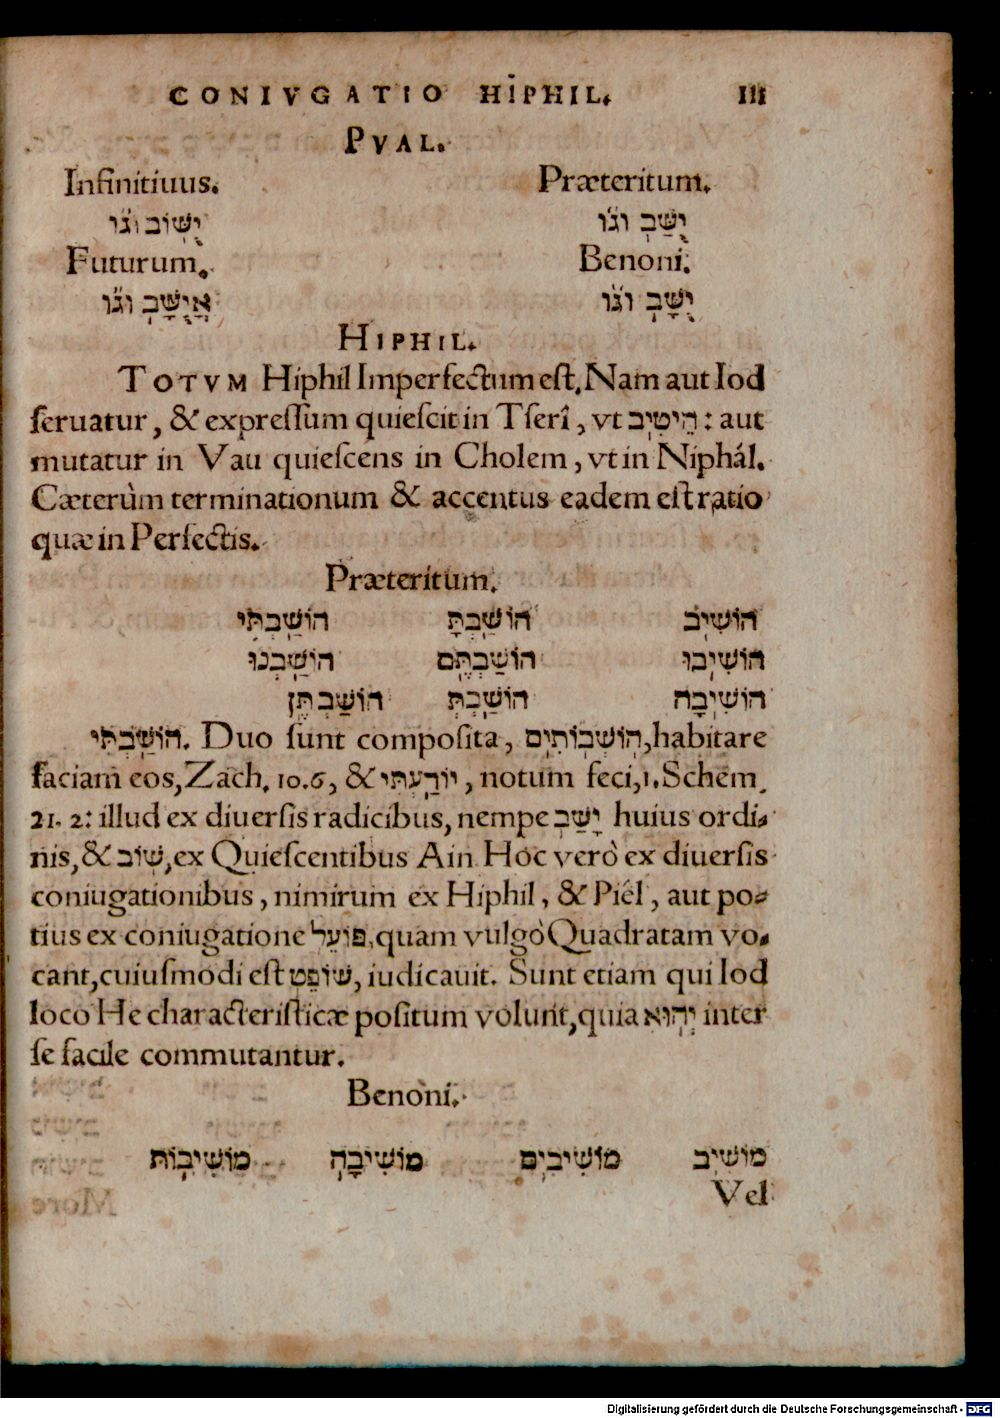 CONIVGATIO HIPHIL. 111
PVAL.
Infinitiuus. Præteritum.
יֻשּׁוֹב וגֹו יֻשַּׁב וגֹו
Futurum. Benoni.
אֲיֻשַּׁב וגֹו יֻשָּׁב וגֹו
HIPHIL.
TOTVM Hiphil Imperfectum est. Nam aut Iod
seruatur, & expressum quiescit in Tserî, vt הֵיטִיב: aut
mutatur in Vau quiescens in Cholem, vt in Niphál.
Cæterùm terminationum & accentus eadem est ratio
quæ in Perfectis.
Præteritum.
הוֹשִׁיב הוֹשַׁבְתָּ הוֹשַׁבְתִּי
הוֹשִׁיבוּ הוֹשַׁבְתֶּם הוֹשַׁבְנוּ
הוֹשִׁיבָה הוֹשַׁבְתְּ הוֹשַׁבְתֶּן
הוֹשַׁבְתִּי. Duo sunt composita, הוֹשְׁבוֹתִים, habitare
faciam eos, Zach. 10. 6, & יוֹדַעְתִּי, notum feci, 1. Schem.
21. 2: illud ex diuersis radicibus, nempe יָשַׁב huius ordi-
nis, & שׁוּב, ex Quiescentibus Ain Hoc verò ex diuersis
coniugationibus, nimirum ex Hiphil, & Piêl, aut po-
tius ex coniugatione פּוֹעֵל, quam vulgò Quadratam vo-
cant, cuiusmodi est שׁוֹפֵט, iudicauit. Sunt etiam qui Iod
loco He characteristicæ positum volunt, quia יְהוּא inter
se facile commutantur.
Benoni.
מוֹשִׁיב מוֹשִׁיבִים מוֹשִׁיבָה מוֹשִׁיבוֹת
Vel
Digitalisierung gefördert durch die Deutsche Forschungsgemeinschaft - DFG